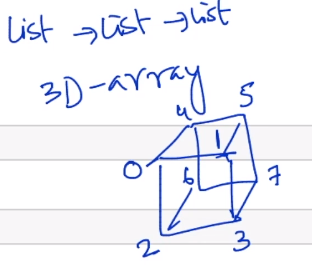 List → List → List
3D-array
4 5
0 1
6 7
2 3